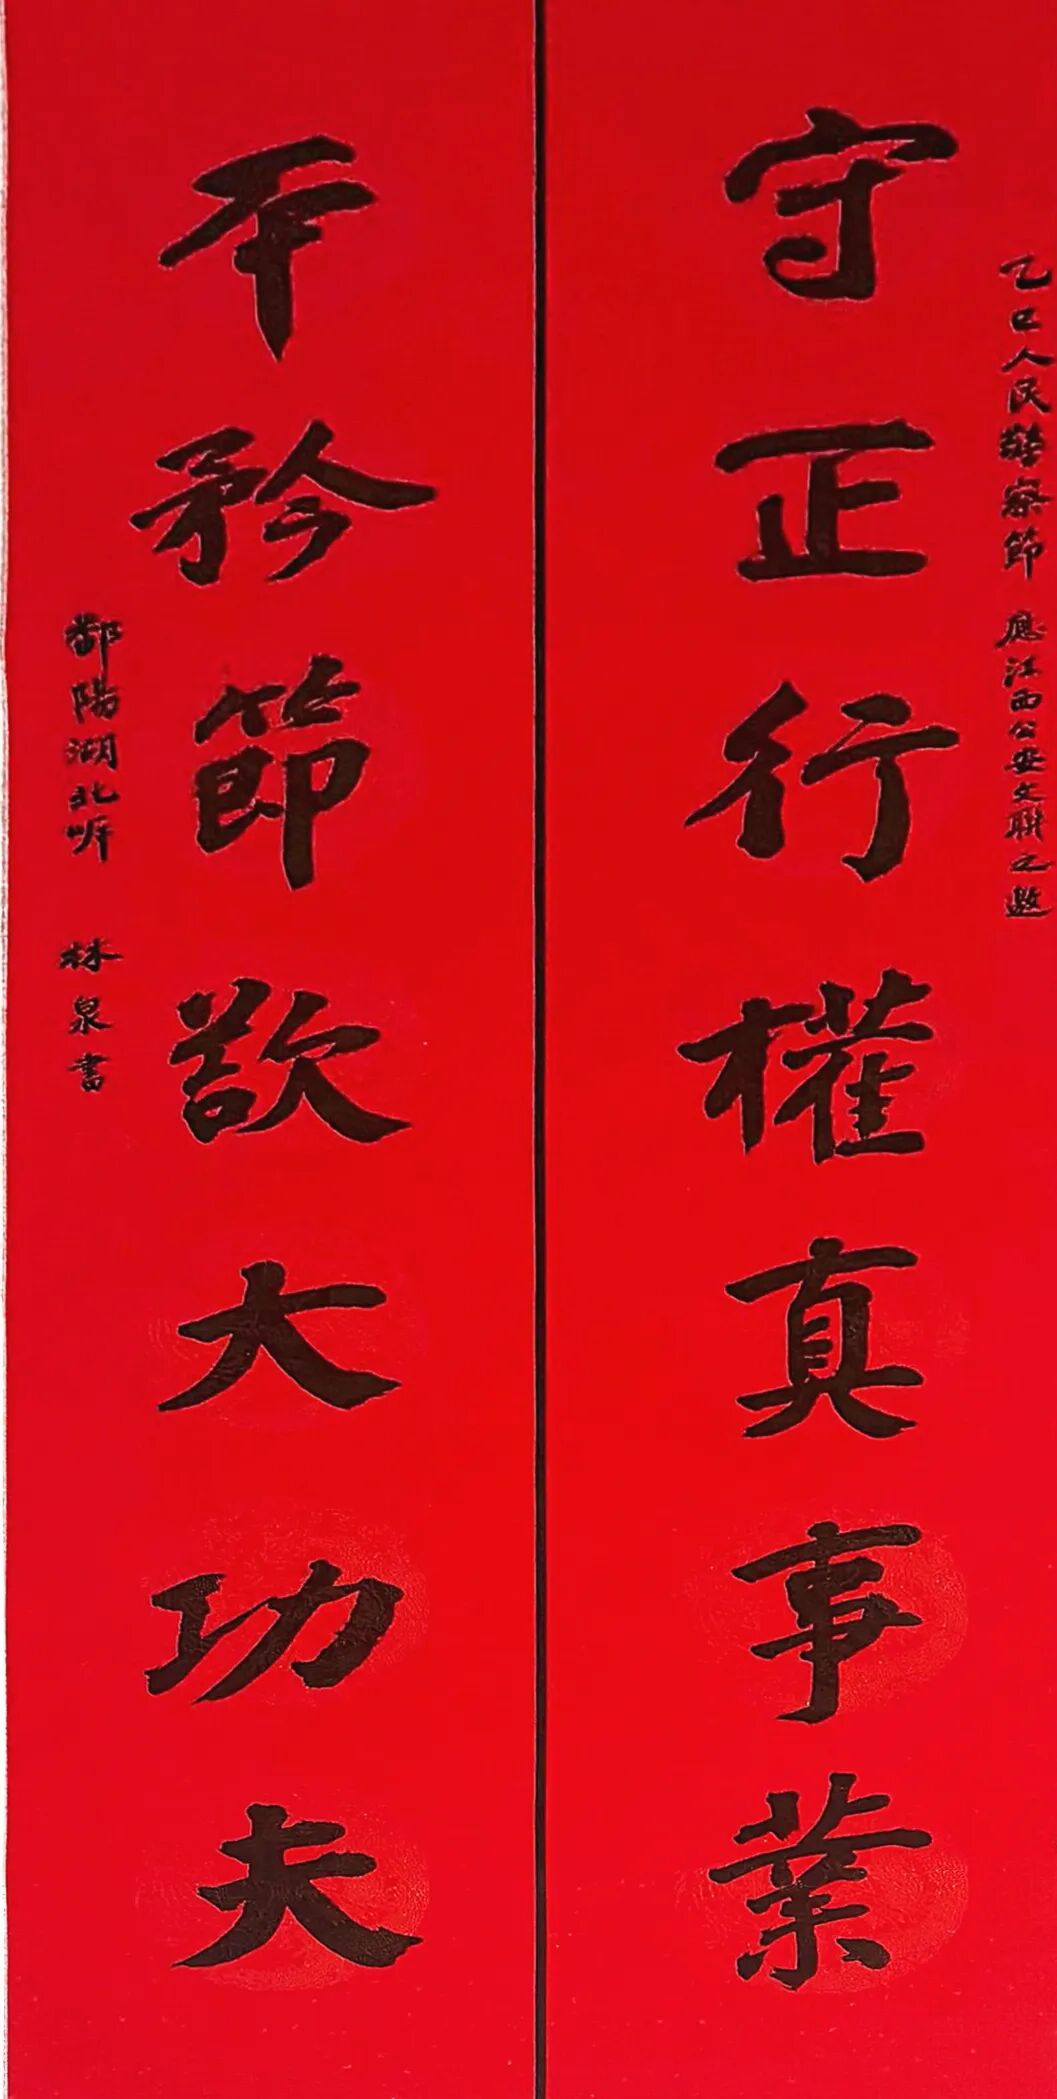 乙巳人民警察節 應江西公安文聯之邀
守正行權真事業
平矜節欲大功夫
鄱陽湖北岸 林泉書